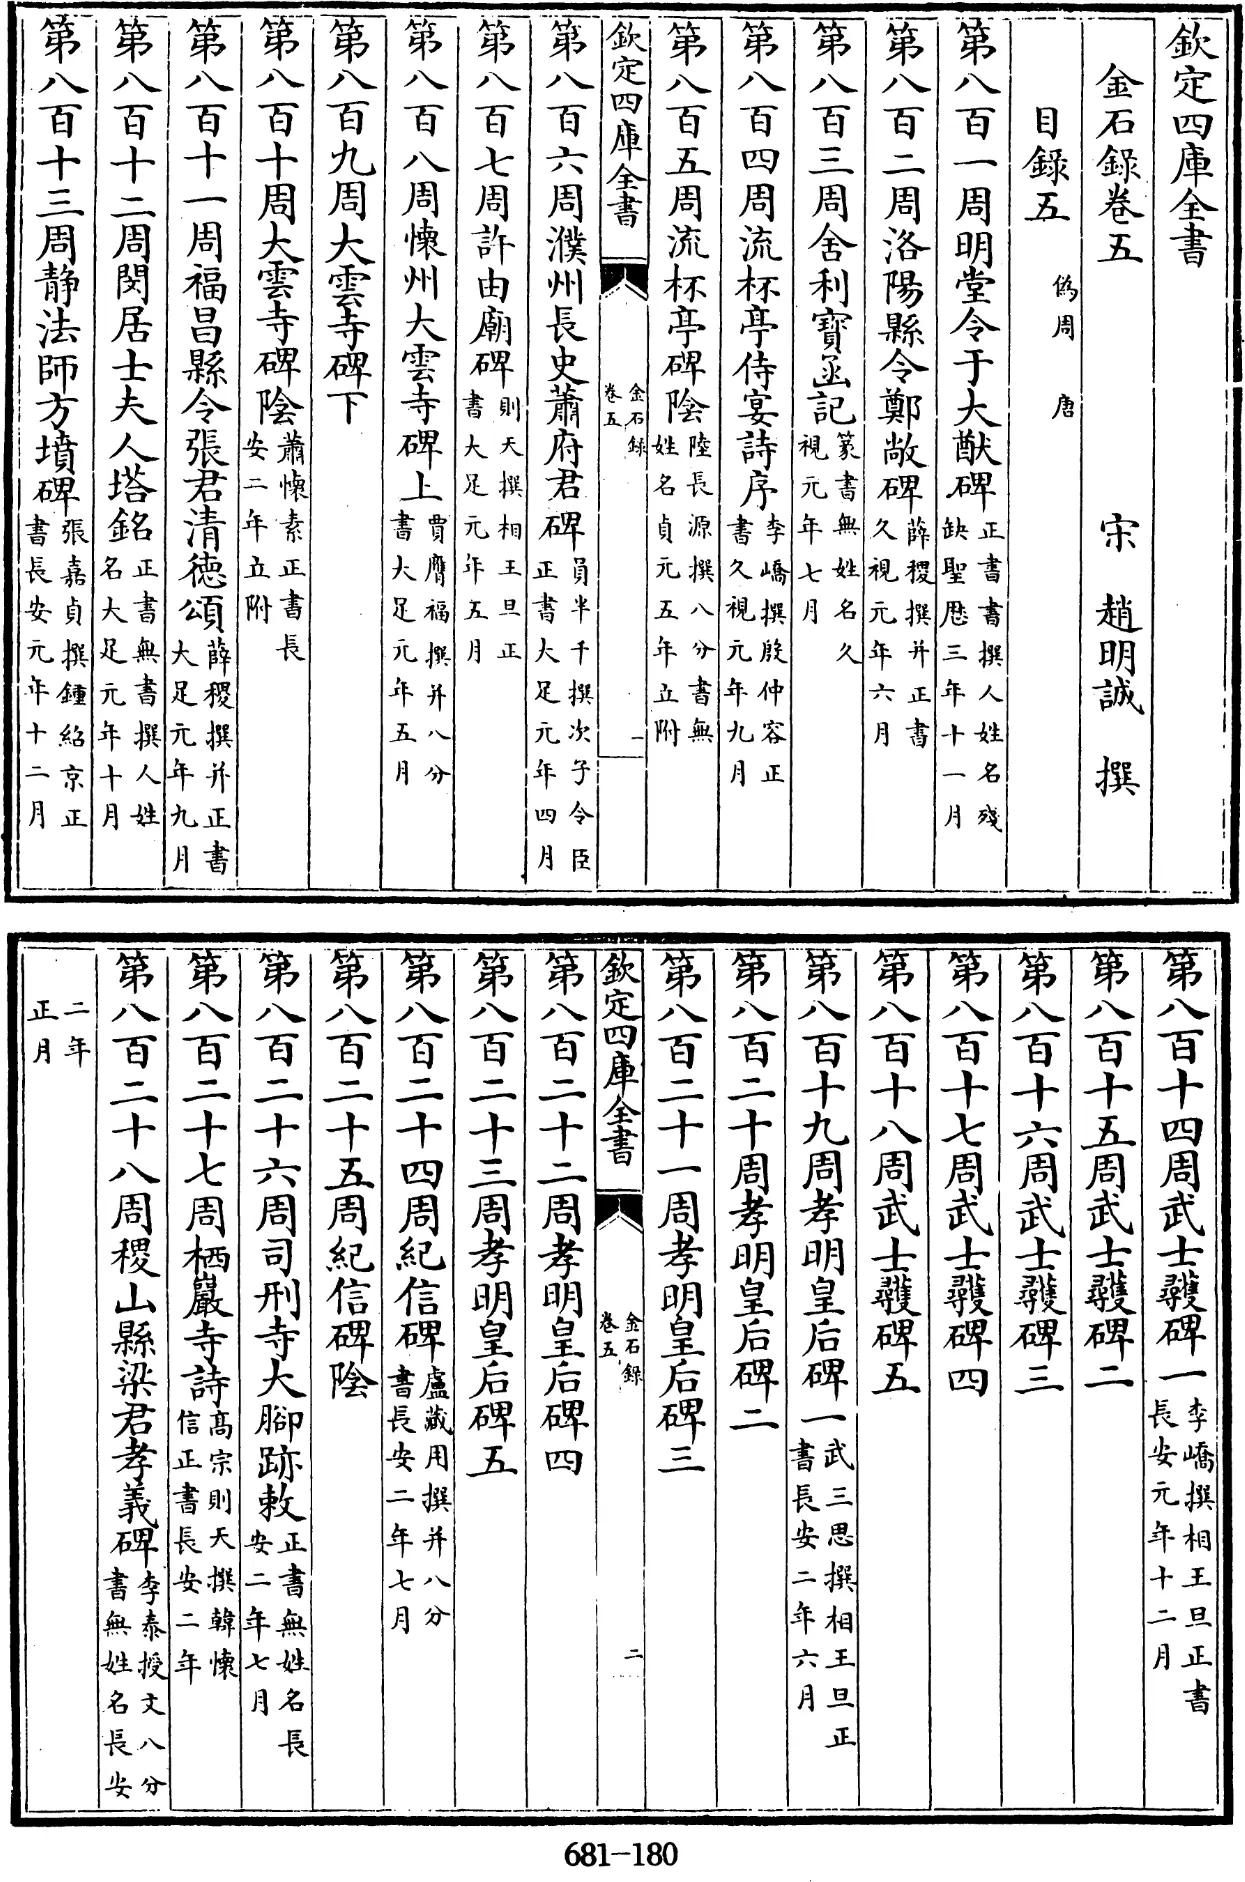 欽定四庫全書
金石錄卷五
宋 趙明誠 撰
目錄五 偽周 唐
第八百一周明堂令于大猷碑 正書書撰人姓名殘缺聖厯三年十一月
第八百二周洛陽縣令鄭敞碑 薛稷撰并正書久視元年六月
第八百三周舍利寶函記 篆書無姓名久視元年七月
第八百四周流杯亭侍宴詩序 李嶠撰殷仲容正書久視元年九月
第八百五周流杯亭碑陰 陸長源撰八分書無姓名貞元五年立附
欽定四庫全書 金石錄卷五 一
第八百六周濮州長史蕭府君碑 員半千撰次子令臣正書大足元年四月
第八百七周許由廟碑 則天撰相王旦正書大足元年五月
第八百八周懷州大雲寺碑上 賈膺福撰并八分書大足元年五月
第八百九周大雲寺碑下
第八百十周大雲寺碑陰 蕭懷素正書長安二年立附
第八百十一周福昌縣令張君清德頌 薛稷撰并正書大足元年九月
第八百十二周閔居士夫人塔銘 正書無書撰人姓名大足元年十月
第八百十三周静法師方墳碑 張嘉貞撰鍾紹京正書長安元年十二月
第八百十四周武士彠碑一 李嶠撰相王旦正書長安元年十二月
第八百十五周武士彠碑二
第八百十六周武士彠碑三
第八百十七周武士彠碑四
第八百十八周武士彠碑五
第八百十九周孝明皇后碑一 武三思撰相王旦正書長安二年六月
第八百二十周孝明皇后碑二
第八百二十一周孝明皇后碑三
欽定四庫全書 金石錄卷五 二
第八百二十二周孝明皇后碑四
第八百二十三周孝明皇后碑五
第八百二十四周紀信碑 盧藏用撰并八分書長安二年七月
第八百二十五周紀信碑陰
第八百二十六周司刑寺大腳跡敕 正書無姓名長安二年七月
第八百二十七周栖巖寺詩 高宗則天撰韓懷信正書長安二年
第八百二十八周稷山縣梁君孝義碑 李泰授文八分書無姓名長安
二年正月
681-180